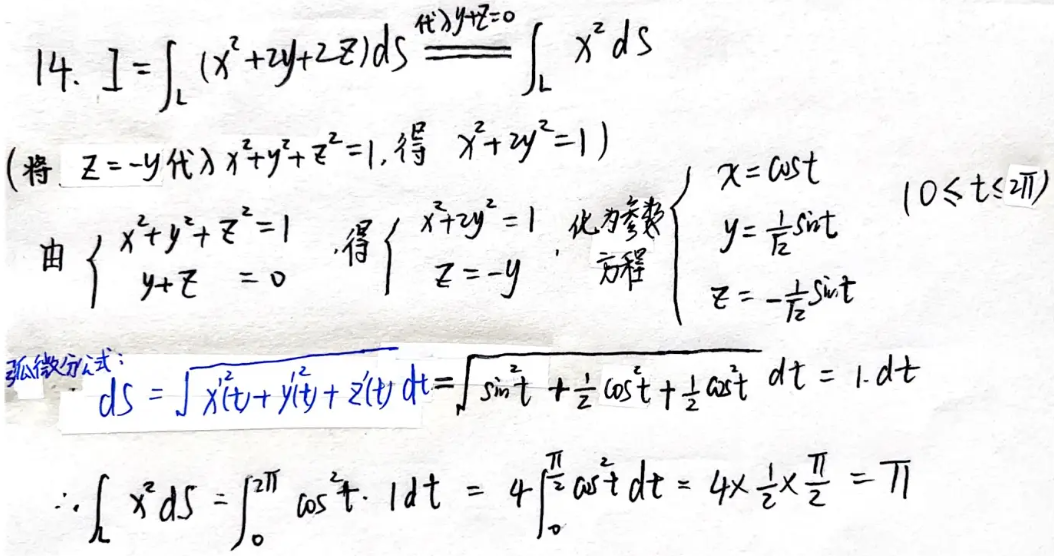 14. I=∫_L (x²+2y+2z)ds ==代入y+z=0== ∫_L x² ds
(将 z=-y代入 x²+y²+z²=1, 得 x²+2y²=1)
由 { x²+y²+z²=1, y+z =0 ,得 { x²+2y²=1, z=-y , 化为参数方程 { x=cost, y=1/√2 sint, z=-1/√2 sint (0≤t≤2π)
弧微分公式:
ds = √(x'²(t)+y'²(t)+z'(t)) dt = √(sin²t + 1/2 cos²t + 1/2 cos²t) dt = 1·dt
∴ ∫_L x² ds = ∫_0^{2π} cos²t · 1dt = 4∫_0^{π/2} cos²t dt = 4×1/2×π/2 = π